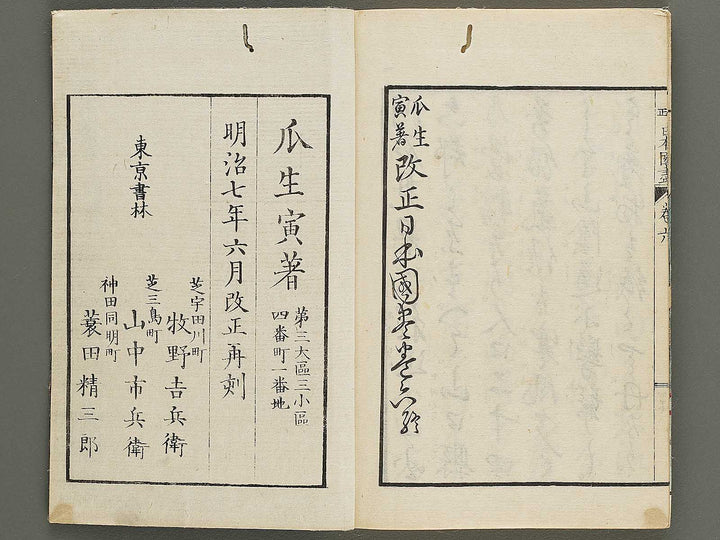 瓜生
寅著
改正日本國盡巻六終
瓜生寅著
第三大區三小區
四番町一番地
明治七年六月改正再刻
東京書林
芝宇田川町
牧野吉兵衛
芝三島町
山中市兵衛
神田同明町
蓑田精三郎